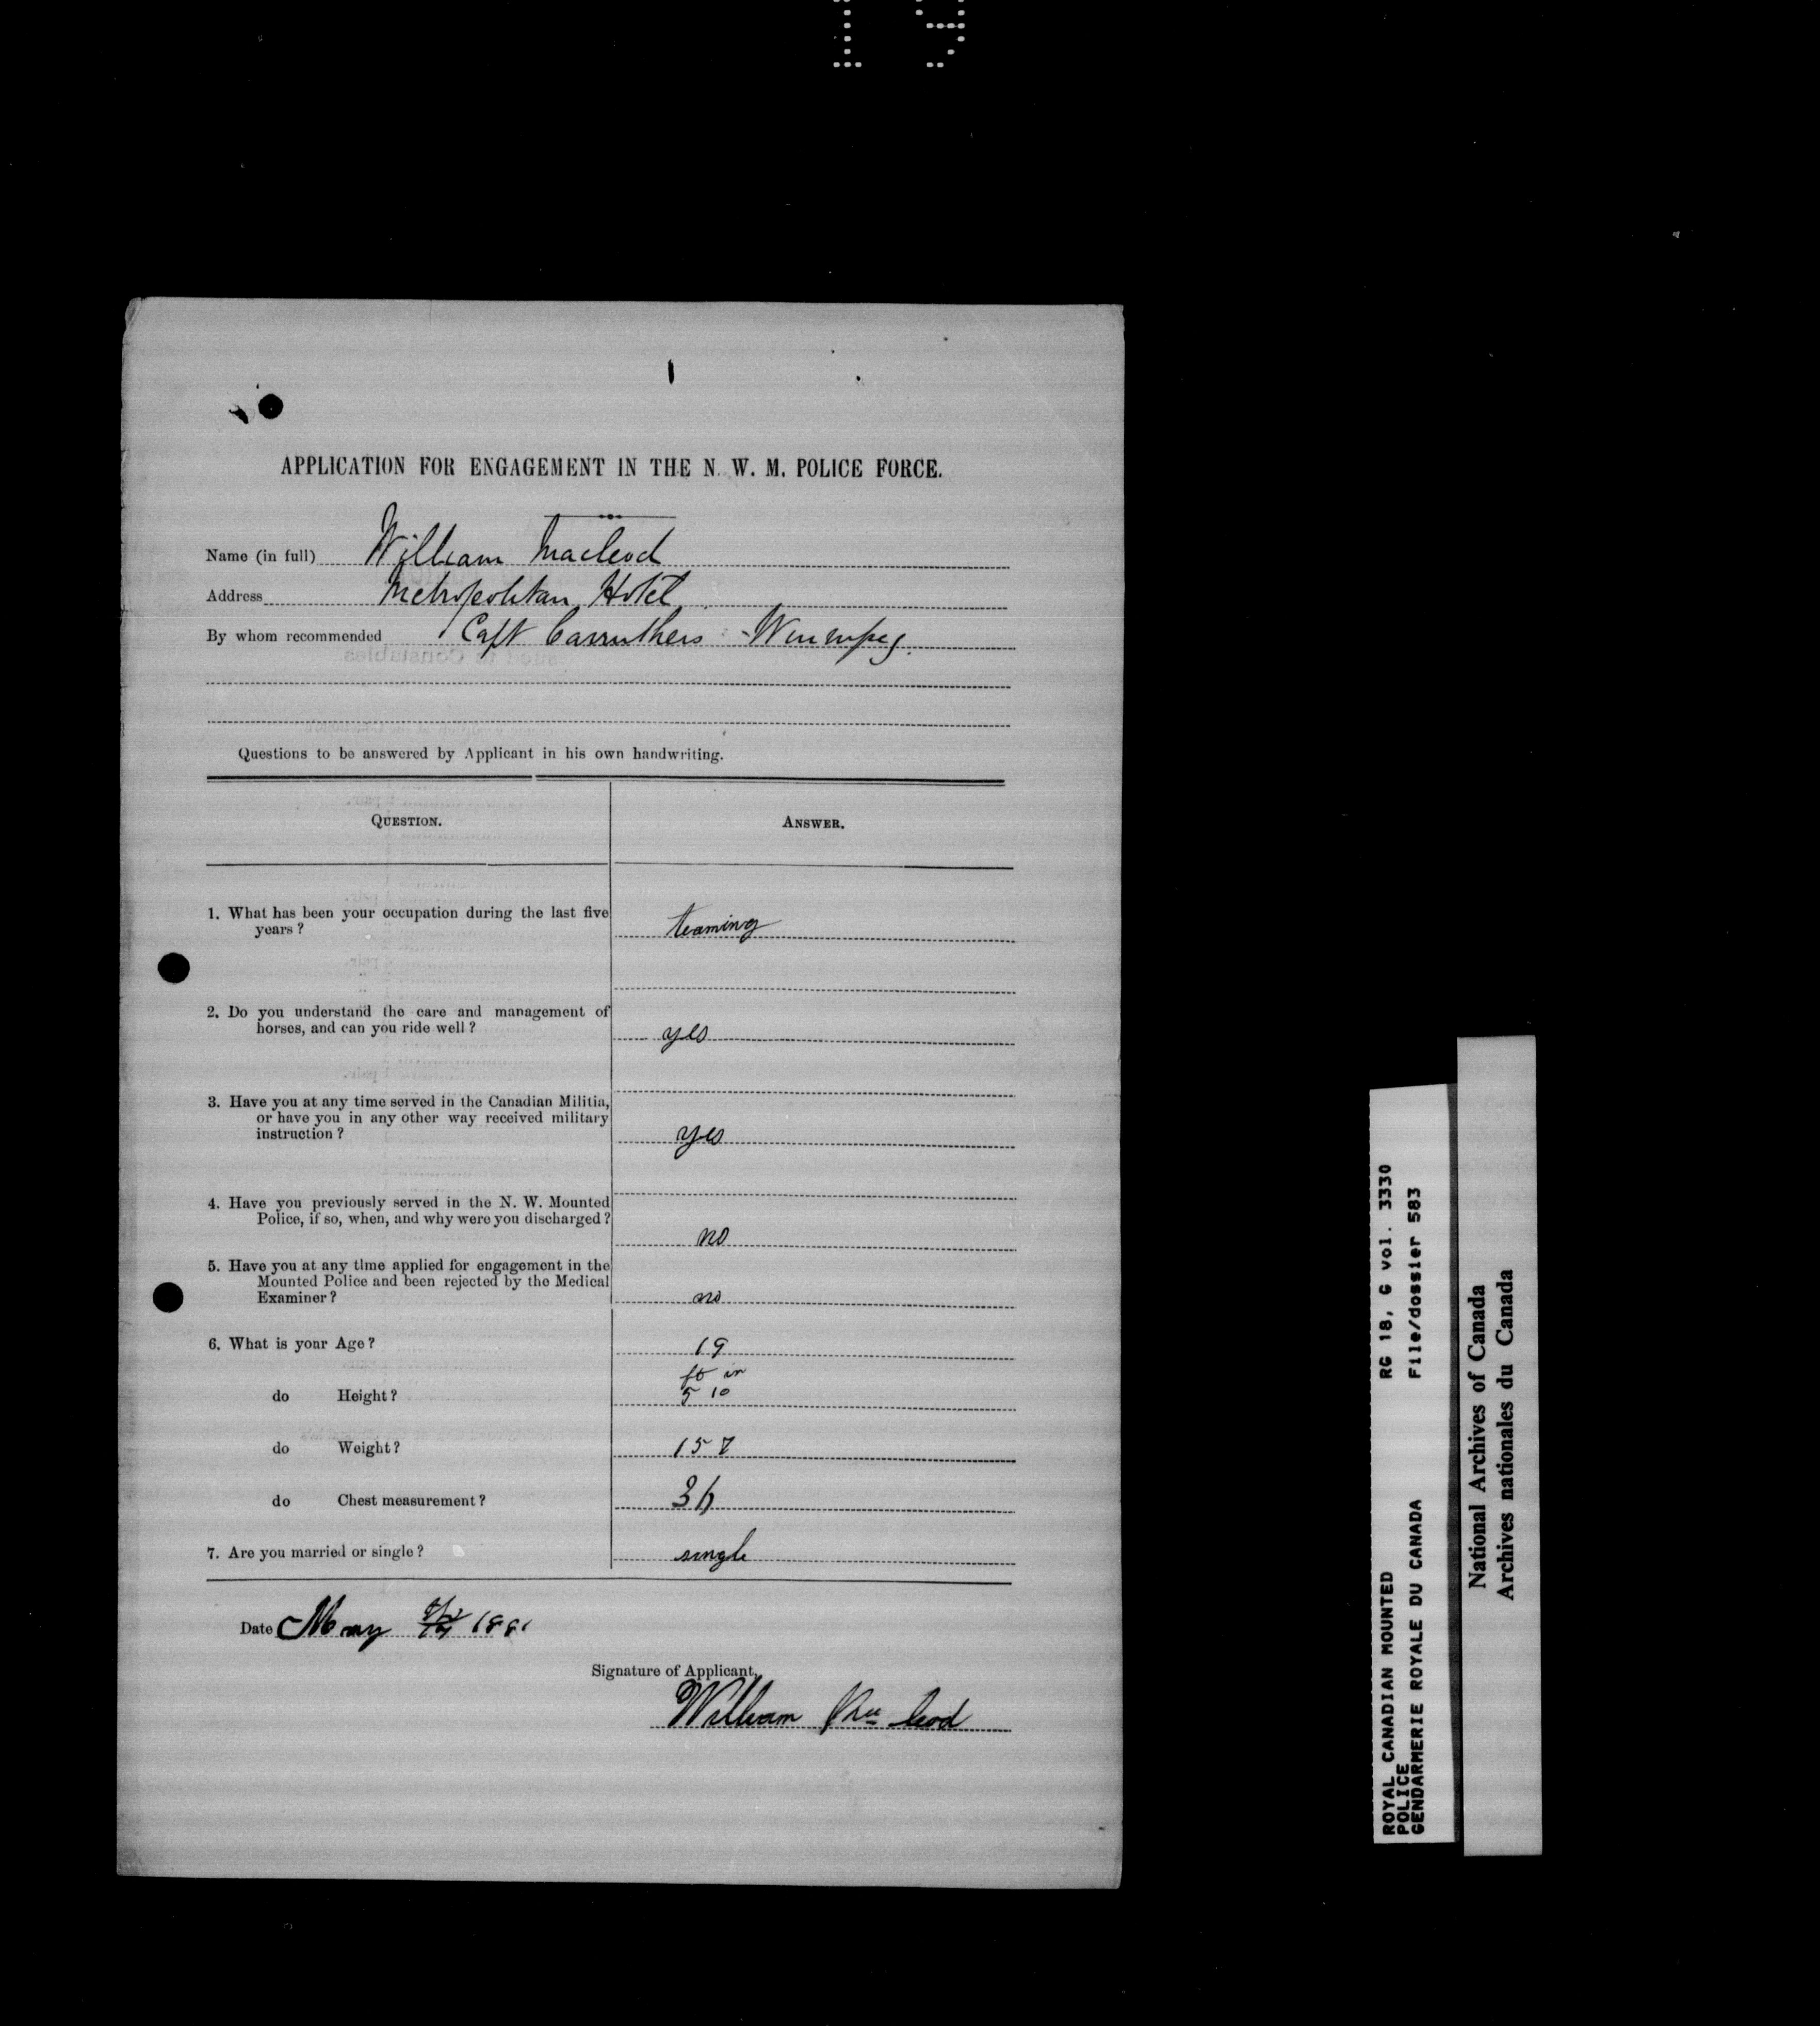 19
APPLICATION FOR ENGAGEMENT IN THE N. W. M. POLICE FORCE.
Name (in full) William Macleod
Address Metropolitan Hotel
By whom recommended Capt Carruthers - Winnipeg.
Questions to be answered by Applicant in his own handwriting.
QUESTION. ANSWER.
1. What has been your occupation during the last five
years? teaming
2. Do you understand the care and management of
horses, and can you ride well? yes
3. Have you at any time served in the Canadian Militia,
or have you in any other way received military
instruction? yes
4. Have you previously served in the N. W. Mounted
Police, if so, when, and why were you discharged?
no
5. Have you at any time applied for engagement in the
Mounted Police and been rejected by the Medical
Examiner? no
6. What is your Age? 19
ft in
do Height? 5 10
do Weight? 157
do Chest measurement? 36
7. Are you married or single? single
Date May 1881
Signature of Applicant,
William MacLeod
ROYAL CANADIAN MOUNTED RG 18, G vol. 3330
POLICE
GENDARMERIE ROYALE DU CANADA File/dossier 583
National Archives of Canada
Archives nationales du Canada